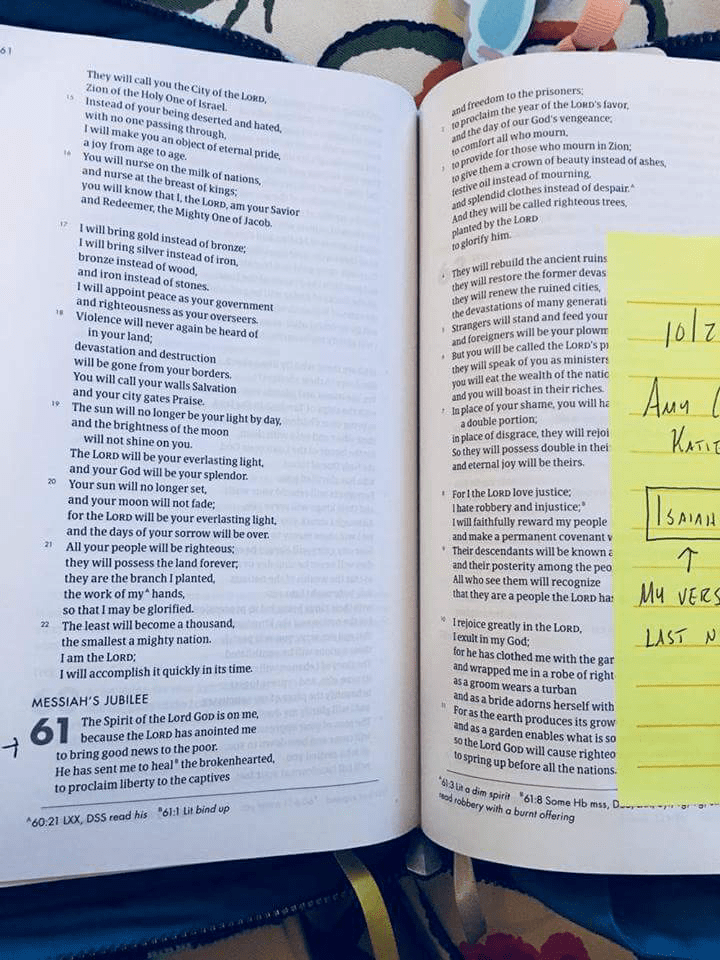 61
They will call you the City of the LORD,
Zion of the Holy One of Israel.
15 Instead of your being deserted and hated,
with no one passing through,
I will make you an object of eternal pride,
a joy from age to age.
16 You will nurse on the milk of nations,
and nurse at the breast of kings;
you will know that I, the LORD, am your Savior
and Redeemer, the Mighty One of Jacob.
17 I will bring gold instead of bronze;
I will bring silver instead of iron,
bronze instead of wood,
and iron instead of stones.
I will appoint peace as your government
and righteousness as your overseers.
18 Violence will never again be heard of
in your land;
devastation and destruction
will be gone from your borders.
You will call your walls Salvation
and your city gates Praise.
19 The sun will no longer be your light by day,
and the brightness of the moon
will not shine on you.
The LORD will be your everlasting light,
and your God will be your splendor.
20 Your sun will no longer set,
and your moon will not fade;
for the LORD will be your everlasting light,
and the days of your sorrow will be over.
21 All your people will be righteous;
they will possess the land forever;
they are the branch I planted,
the work of my^A hands,
so that I may be glorified.
22 The least will become a thousand,
the smallest a mighty nation.
I am the LORD;
I will accomplish it quickly in its time.
MESSIAH'S JUBILEE
61 The Spirit of the Lord GOD is on me,
because the LORD has anointed me
to bring good news to the poor.
He has sent me to heal^B the brokenhearted,
to proclaim liberty to the captives
^A60:21 LXX, DSS read his ^B61:1 Lit bind up
and freedom to the prisoners;
2 to proclaim the year of the LORD's favor,
and the day of our God's vengeance;
to comfort all who mourn,
3 to provide for those who mourn in Zion;
to give them a crown of beauty instead of ashes,
festive oil instead of mourning,
and splendid clothes instead of despair.^A
And they will be called righteous trees,
planted by the LORD
to glorify him.
4 They will rebuild the ancient ruins
they will restore the former devas
they will renew the ruined cities,
the devastations of many generati
5 Strangers will stand and feed your
and foreigners will be your plowm
6 But you will be called the LORD's pr
they will speak of you as ministers
you will eat the wealth of the natio
and you will boast in their riches.
7 In place of your shame, you will ha
a double portion;
in place of disgrace, they will rejoi
So they will possess double in thei
and eternal joy will be theirs.
8 For I the LORD love justice;
I hate robbery and injustice;^B
I will faithfully reward my people
and make a permanent covenant w
9 Their descendants will be known a
and their posterity among the peo
All who see them will recognize
that they are a people the LORD has
10 I rejoice greatly in the LORD,
I exult in my God;
for he has clothed me with the gar
and wrapped me in a robe of right
as a groom wears a turban
and as a bride adorns herself with
11 For as the earth produces its grow
and as a garden enables what is so
so the Lord GOD will cause righteo
to spring up before all the nations.
^A61:3 Lit a dim spirit ^B61:8 Some Hb mss,
read robbery with a burnt offering
10/2
AMY
KATIE
ISAIAH
↑
MY VERS
LAST N